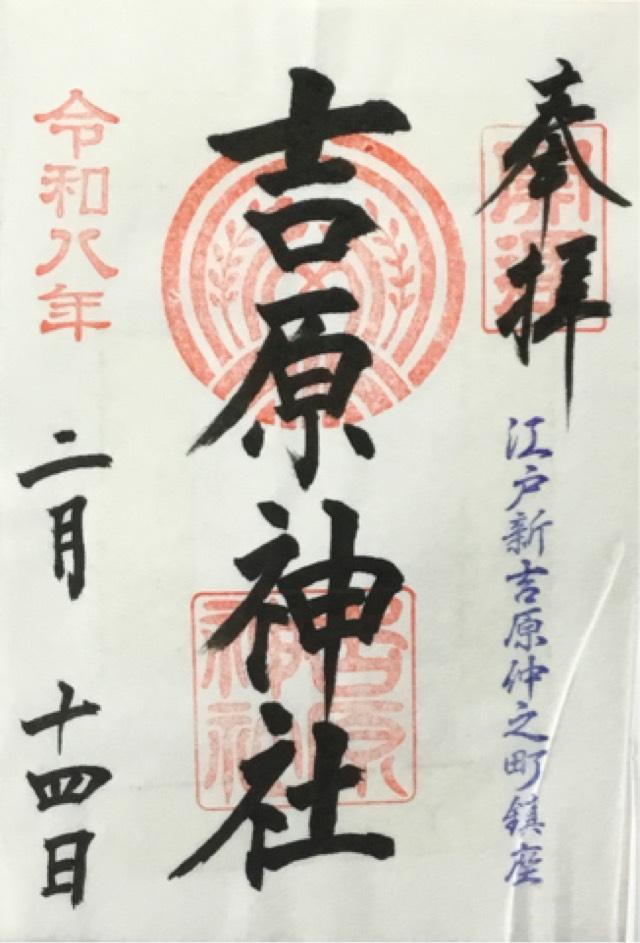 奉拝
開運
江戸新吉原仲之町鎮座
吉原神社
吉原神社
令和八年
二月 十四日